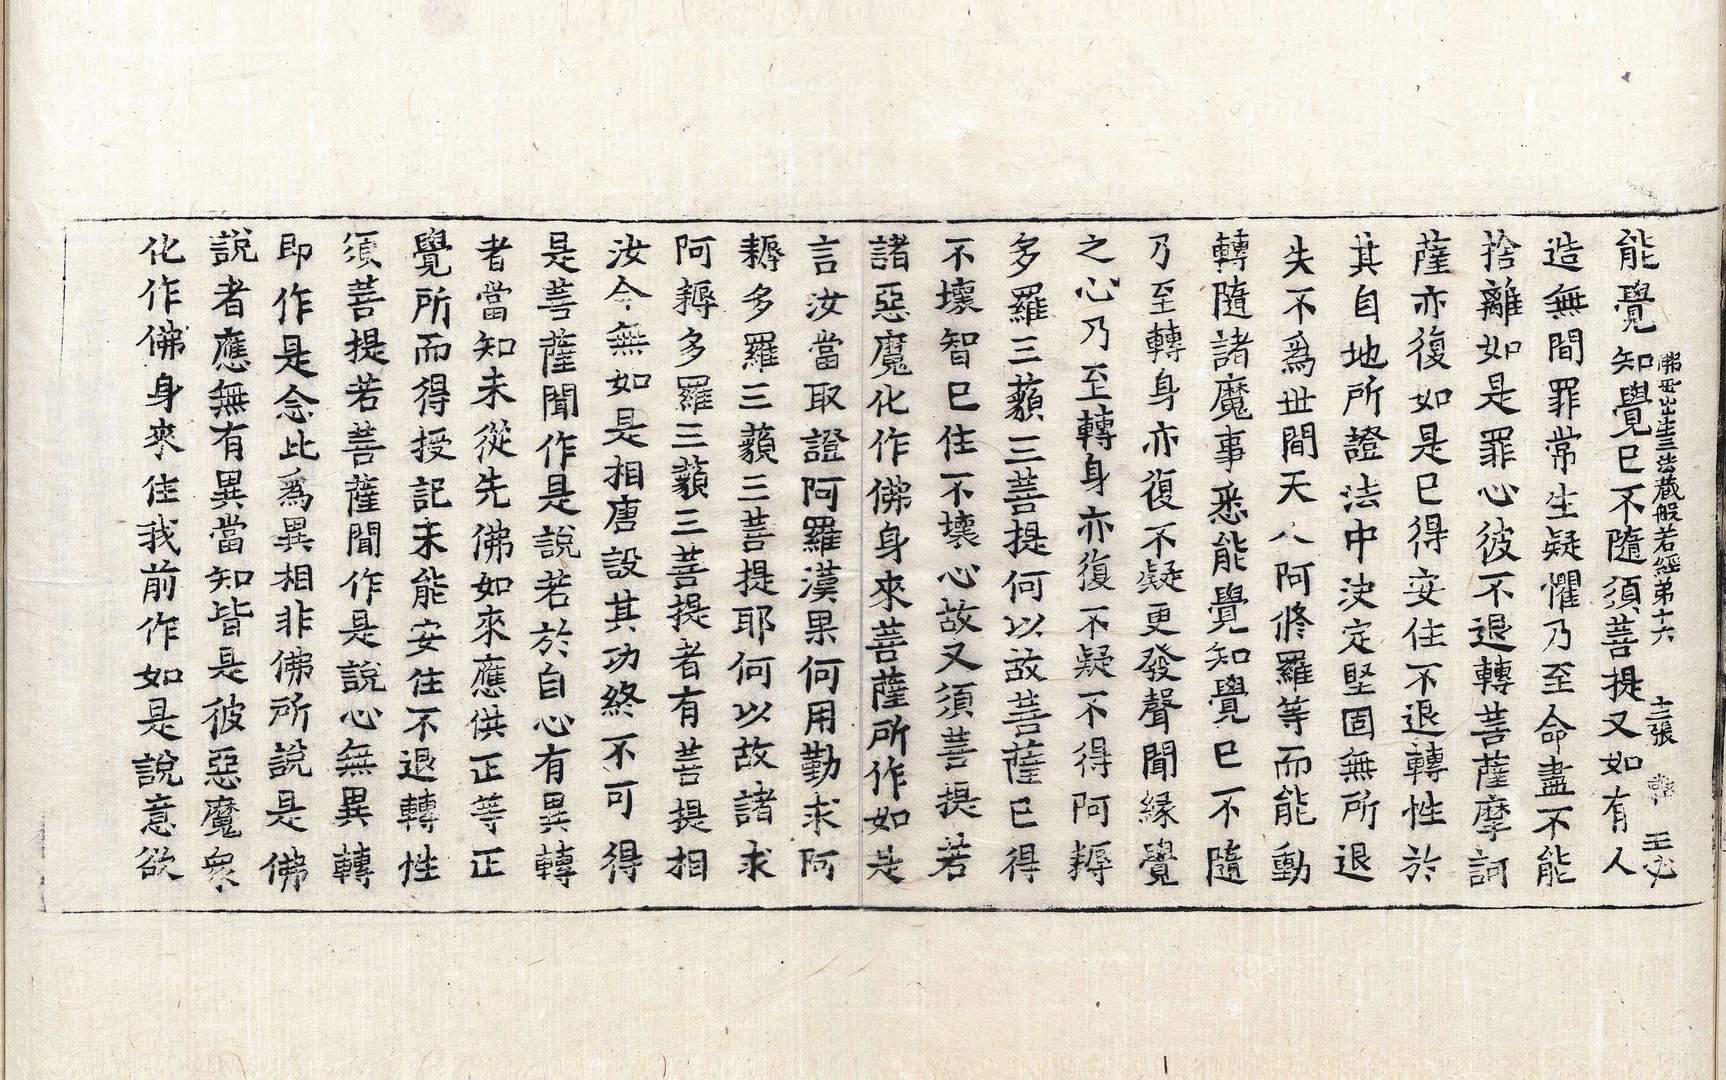 佛母出生三法藏般若經第十六 十二張 王必
能覺知覺已不隨須菩提又如有人
造無間罪常生疑懼乃至命盡不能
捨離如是罪心彼不退轉菩薩摩訶
薩亦復如是已得安住不退轉性於
其自地所證法中決定堅固無所退
失不爲世間天人阿修羅等而能動
轉隨諸魔事悉能覺知覺已不隨
乃至轉身亦復不疑更發聲聞緣覺
之心乃至轉身亦復不疑不得阿耨
多羅三藐三菩提何以故菩薩已得
不壞智已住不壞心故又須菩提若
諸惡魔化作佛身來菩薩所作如是
言汝當取證阿羅漢果何用勤求阿
耨多羅三藐三菩提耶何以故諸求
阿耨多羅三藐三菩提者有菩提相
汝今無如是相唐設其功終不可得
是菩薩聞作是說若於自心有異轉
者當知未從先佛如來應供正等正
覺所而得授記未能安住不退轉性
須菩提若菩薩聞作是說心無異轉
即作是念此爲異相非佛所說是佛
說者應無有異當知皆是彼惡魔衆
化作佛身來住我前作如是說意欲